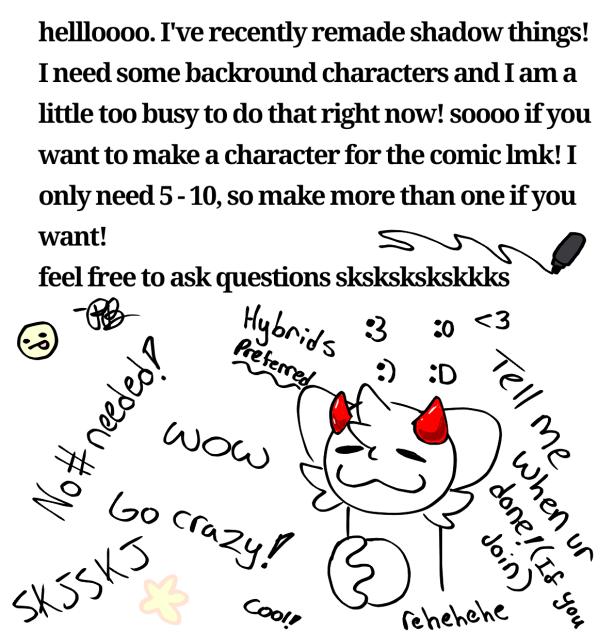 hellloooo. I've recently remade shadow things!
I need some backround characters and I am a
little too busy to do that right now! soooo if you
want to make a character for the comic lmk! I
only need 5 - 10, so make more than one if you
want!
feel free to ask questions skskskskskkks
Hybrids
Preferred
:3
:0
<3
:)
:D
No # needed!
WOW
Go crazy!
SKJSKJ
Cool!
rehehehe
Tell me
When ur
done! (If you
Join)